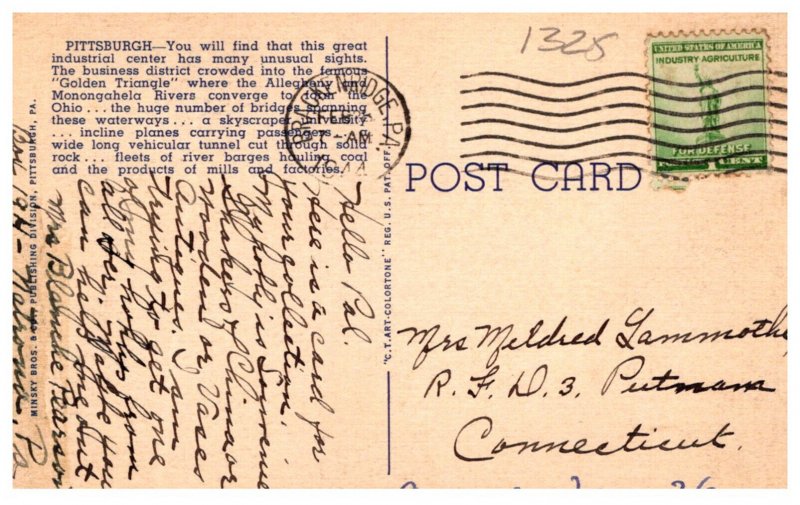 PITTSBURGH—You will find that this great
industrial center has many unusual sights.
The business district crowded into the famous
"Golden Triangle" where the Allegheny and
Monongahela Rivers converge to form the
Ohio . . . the huge number of bridges spanning
these waterways . . . a skyscraper university
. . . incline planes carrying passengers . . .
wide long vehicular tunnel cut through solid
rock . . . fleets of river barges hauling coal
and the products of mills and factories.
MINSKY BROS. & CO., PUBLISHING DIVISION, PITTSBURGH, PA.
"C.T. ART-COLORTONE" REG. U.S. PAT. OFF.
Hello Pal.
Here is a card for
your collection.
My hobby is
Shakers of China or
Wooden or Vases
Antiques. I am
trying to get one
of my hobbys from
all
can help me out
Mrs Blanche Pearson
Box 194 - Natrona, Pa
1325
BRACKENRIDGE, PA.
FEB
7 - AM
UNITED STATES OF AMERICA
INDUSTRY AGRICULTURE
FOR DEFENSE
1 CENT
POST CARD
Mrs Mildred Lammothe
R. F. D. 3. Putnam
Connecticut.